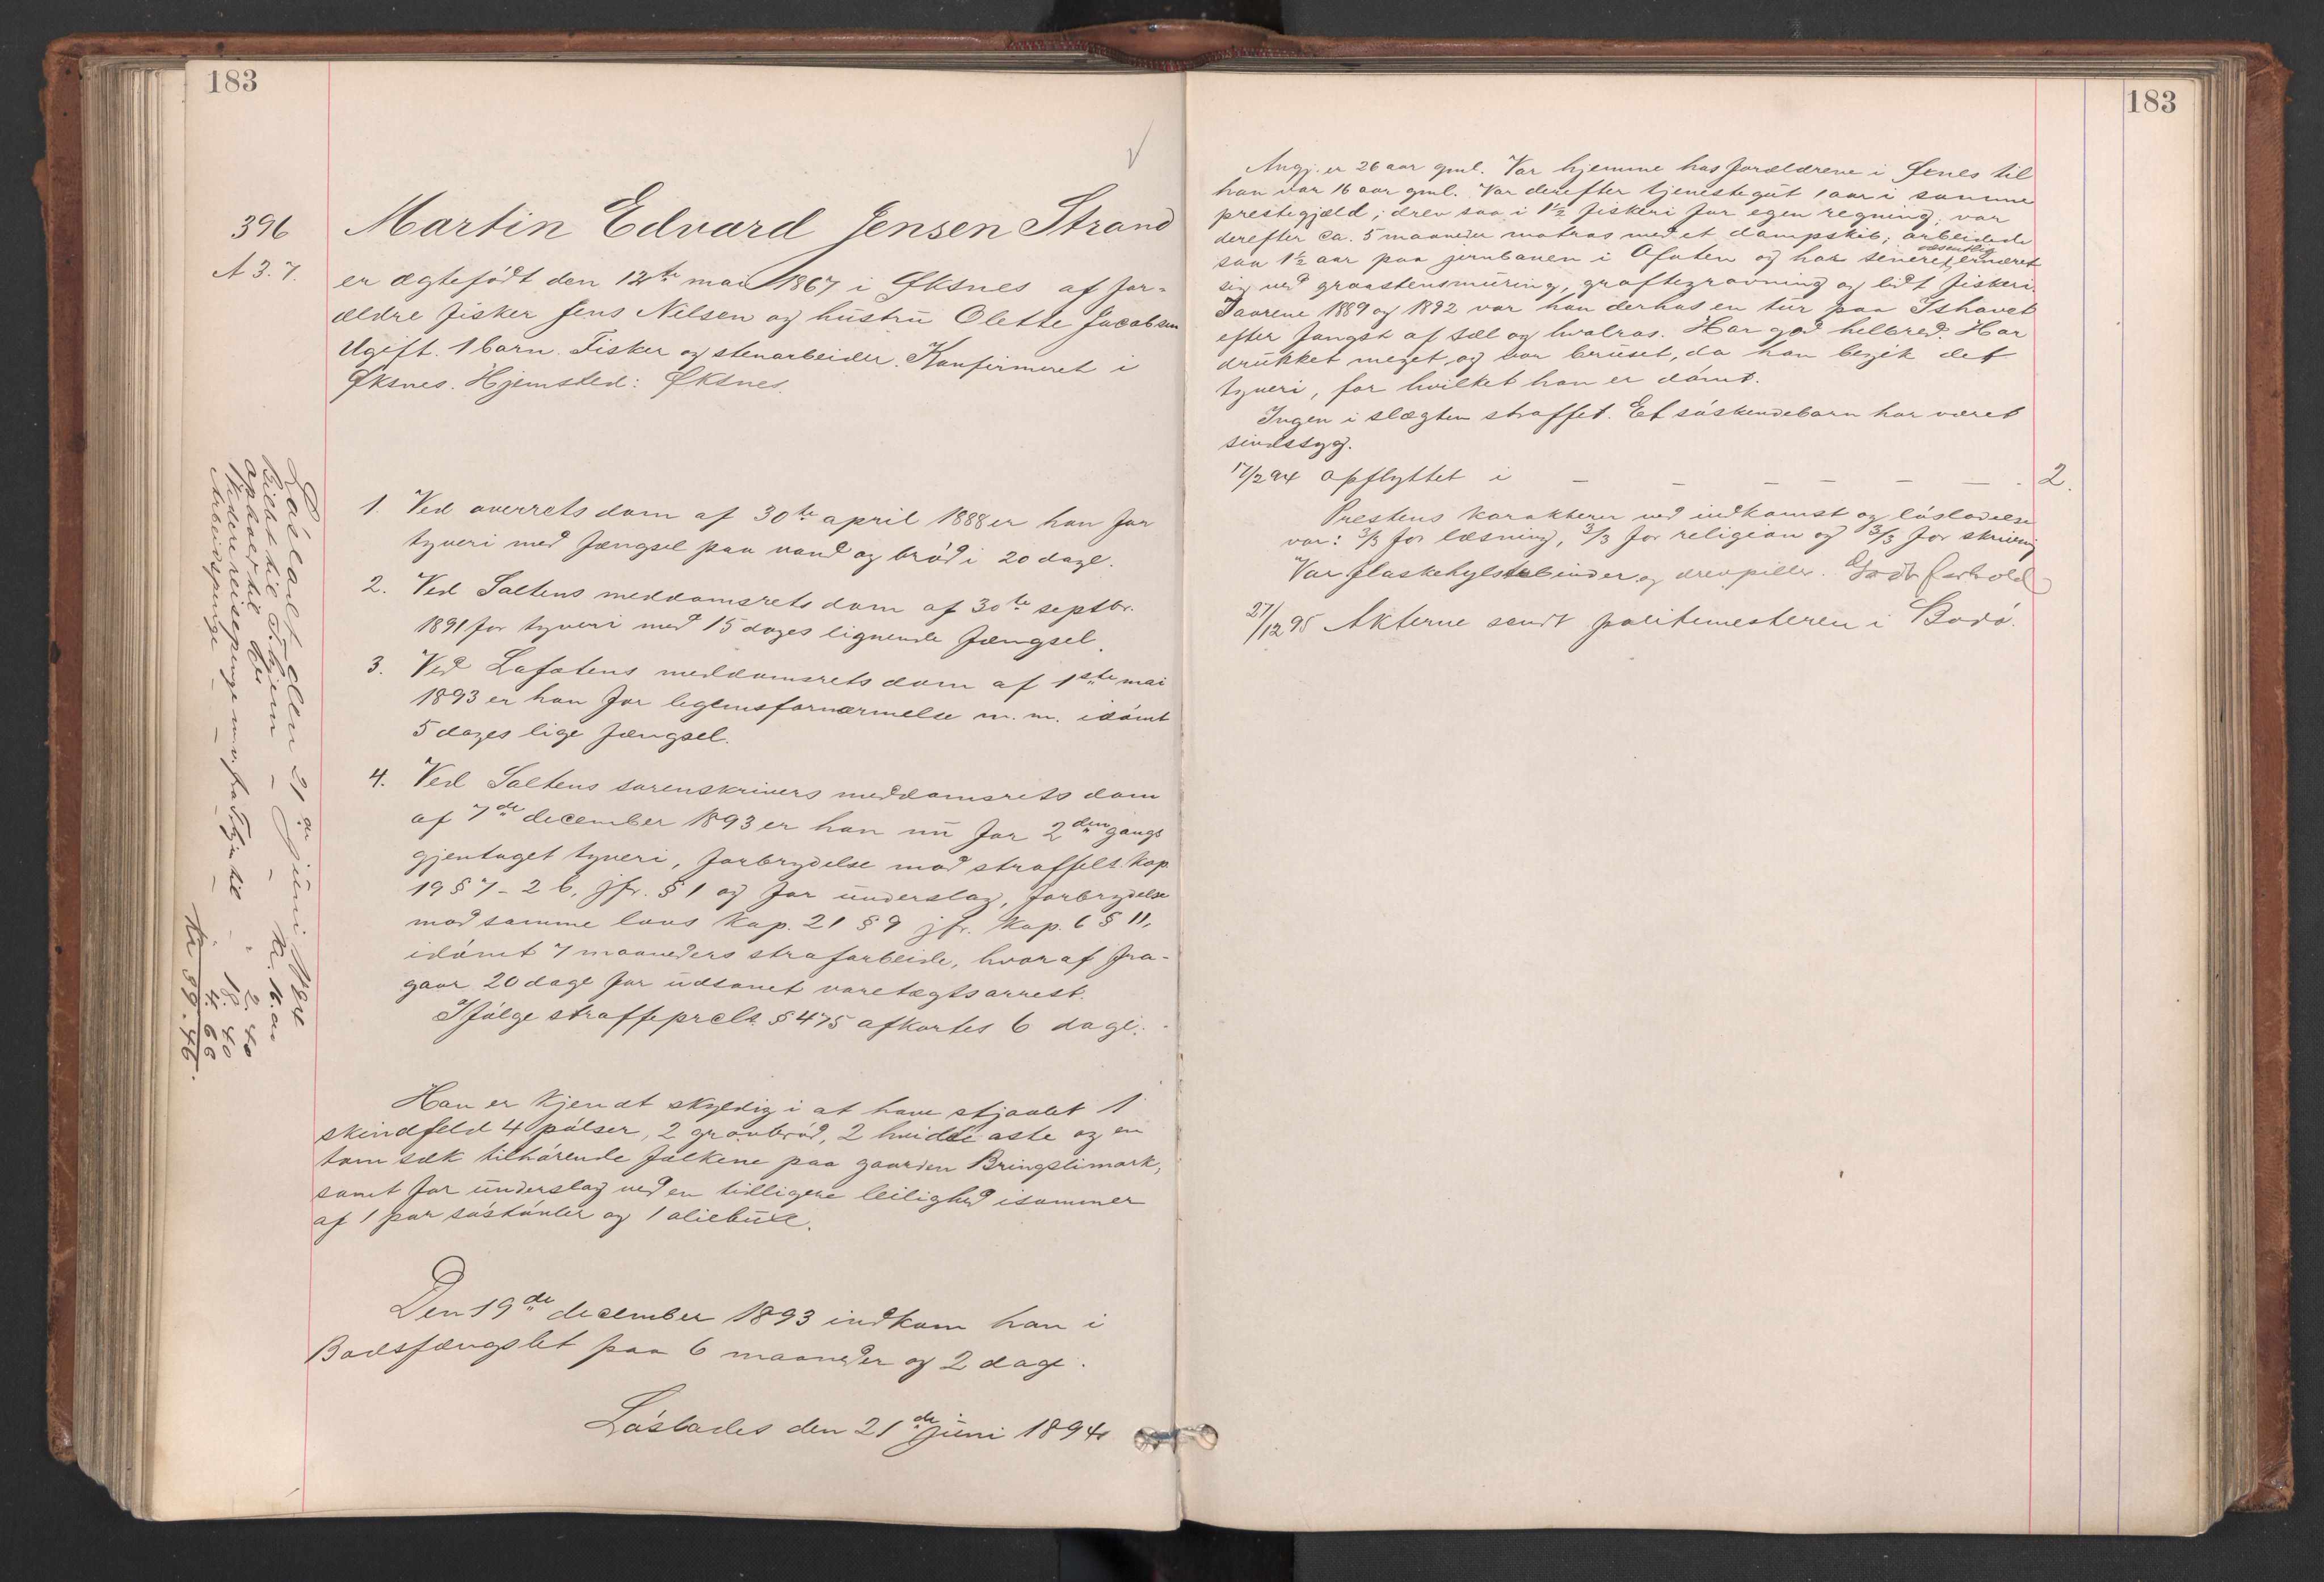 183
396
A 3.7.
Martin Edvard Jensen Strand
er ægtefødt den 12te mai 1867 i Øksnes af for-
ældre fisker Jens Nilsen og hustru Olette Jacobsen
Ugift. 1 barn. Fisker og stenarbeider. Konfirmeret i
Øksnes. Hjemsted: Øksnes.
1. Ved overrets dom af 30te april 1888 er han for
tyveri med fængsel paa vand og brød i 20 dage.
2. Ved Saltens meddomsrets dom af 30te septbr.
1891 for tyveri med 15 dages lignende fængsel.
3. Ved Lofotens meddomsrets dom af 1ste mai
1893 er han for legemsfornærmelse m.m. idømt
5 dages lige fængsel.
4. Ved Saltens sorenskrivers meddomsrets dom
af 7de december 1893 er han nu for 2den gangs
gjentaget tyveri, forbrydelse mod straffels. kap.
19 § 7 - 2 b, jfr. § 1 og for underslag, forbrydelse
mod samme lovs kap. 21 § 9 jfr. kap. 6 § 11,
idømt 7 maaneders strafarbeide, hvoraf fra-
gaar 20 dage for udsonet varetægtsarrest.
Ifølge straffeprcls. § 475 afkortes 6 dage.
Han er kjendt skyldig i at have stjaalet 1
skindfeld 4 pølser, 2 grovbrød, 2 hvide oste og en
tom sæk tilhørende folkene paa gaarden Bringslimark,
samt for underslag ved en tidligere leilighed isommer
af 1 par søstøvler og 1 oliebuxe.
Den 19de december 1893 indkom han i
Bodsfængslet paa 6 maaneder og 2 dage.
Løslades den 21de juni 1894
Løsladt den 21de juni 1894
Billet til Thjem - - Kr. 16.00
ophold til - - " 2.40
Videre reisepenge m.v. fra til - " 18.40
Arbeidspenge - - - " 4.66
Kr 39.46.
183
Angj. er 26 aar gml. Var hjemme hos forældrene i Øknes til
han var 16 aar gml. Var derefter tjenestegut 1 aar i samme
prestegjæld; drev saa i 1½ fiskeri for egen regning; var
derefter ca. 5 maaneder matros med et dampskib; arbeidede
saa 1½ aar paa jernbanen i Ofoten og har senere væsentlig ernæret
sig ved graastensmuring, grøftegravning og lidt fiskeri.
I aarene 1889 og 1892 var han derhos en tur paa Ishavet
efter fangst af sæl og hvalros. Har god helbred. Har
drukket meget og var beruset, da han begik det
tyveri, for hvilket han er dømt.
Ingen i slægten straffet. Et søskendebarn har været
sindssyg.
17/2 94 opflyttet i - - - - - - . 2.
Prestens karakterer ved indkomst og løsladelse
var: 3/3 for læsning, 3/3 for religion og 3/3 for skrivning
Var flaskehylsebinder og drevpiller. Godt forhold
27/12 95 Akterne sendt politimesteren i Bodø.